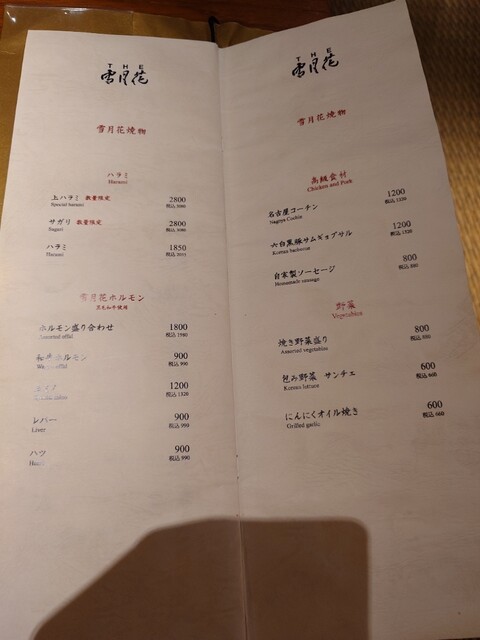 THE
雪月花
雪月花焼物
ハラミ
Harami
上ハラミ 数量限定 2800
Special harami 税込 3080
サガリ 数量限定 2800
Sagari 税込 3080
ハラミ 1850
Harami 税込 2035
雪月花ホルモン
黒毛和牛使用
ホルモン盛り合わせ 1800
Assorted offal 税込 1980
和牛ホルモン 900
税込 990
1200
税込 1320
レバー 900
Liver 税込 990
ハツ 900
税込 990
THE
雪月花
雪月花焼物
高級食材
Chicken and Pork
名古屋コーチン 1200
Nagoya Cochin 税込 1320
六白黒豚サムギョプサル 1200
Korean barbecue 税込 1320
自家製ソーセージ 800
Homemade sausage 税込 880
野菜
Vegetables
焼き野菜盛り 800
Assorted vegetables 税込 880
包み野菜 サンチェ 600
Korean lettuce 税込 660
にんにくオイル焼き 600
Grilled garlic 税込 660